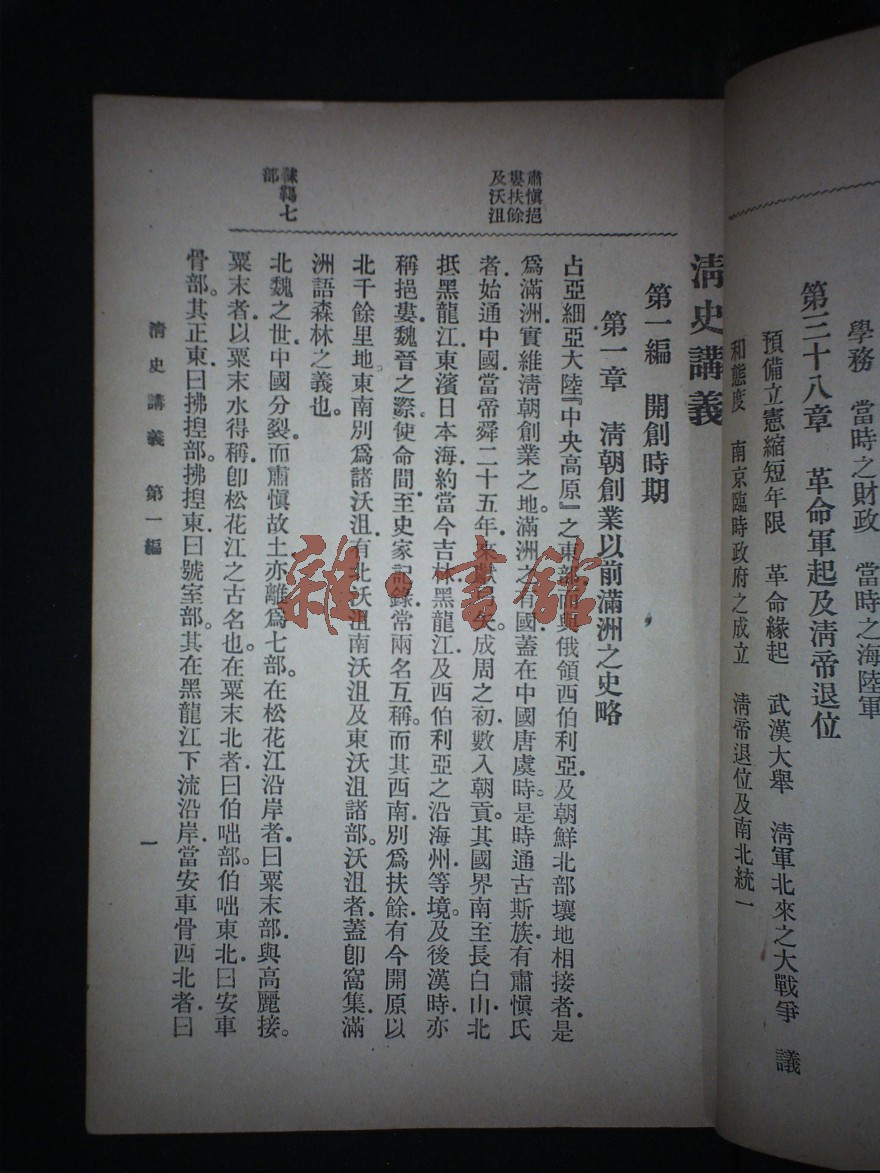 學務　當時之財政　當時之海陸軍
第三十八章　革命軍起及淸帝退位
預備立憲縮短年限　革命緣起　武漢大舉　淸軍北來之大戰爭　議
和態度　南京臨時政府之成立　淸帝退位及南北統一
淸史講義
第一編　開創時期
第一章　淸朝創業以前滿洲之史略
肅愼挹
婁扶餘
及沃沮
占亞細亞大陸『中央高原』之東部而與俄領西伯利亞及朝鮮北部壤地相接者是
爲滿洲實維淸朝創業之地。滿洲之有國蓋在中國唐虞時。是時通古斯族有肅愼氏
者始通中國當帝舜二十五年來獻矢。成周之初數入朝貢。其國界南至長白山北
抵黑龍江東濱日本海約當今吉林黑龍江及西伯利亞之沿海州等境。及後漢時亦
稱挹婁魏晉之際使命間至史家記錄常兩名互稱。而其西南別爲扶餘有今開原以
北千餘里地。東南別爲諸沃沮有北沃沮南沃沮及東沃沮諸部。沃沮者蓋卽窩集滿
洲語森林之義也。
靺鞨七
部
北魏之世中國分裂而肅愼故土亦離爲七部。在松花江沿岸者曰粟末部與高麗接。
粟末者以粟末水得稱卽松花江之古名也。在粟末北者曰伯咄部。伯咄東北曰安車
骨部。其正東曰拂揑部。拂揑東曰號室部。其在黑龍江下流沿岸當安車骨西北者曰
淸史講義　第一編
一
雜·書館